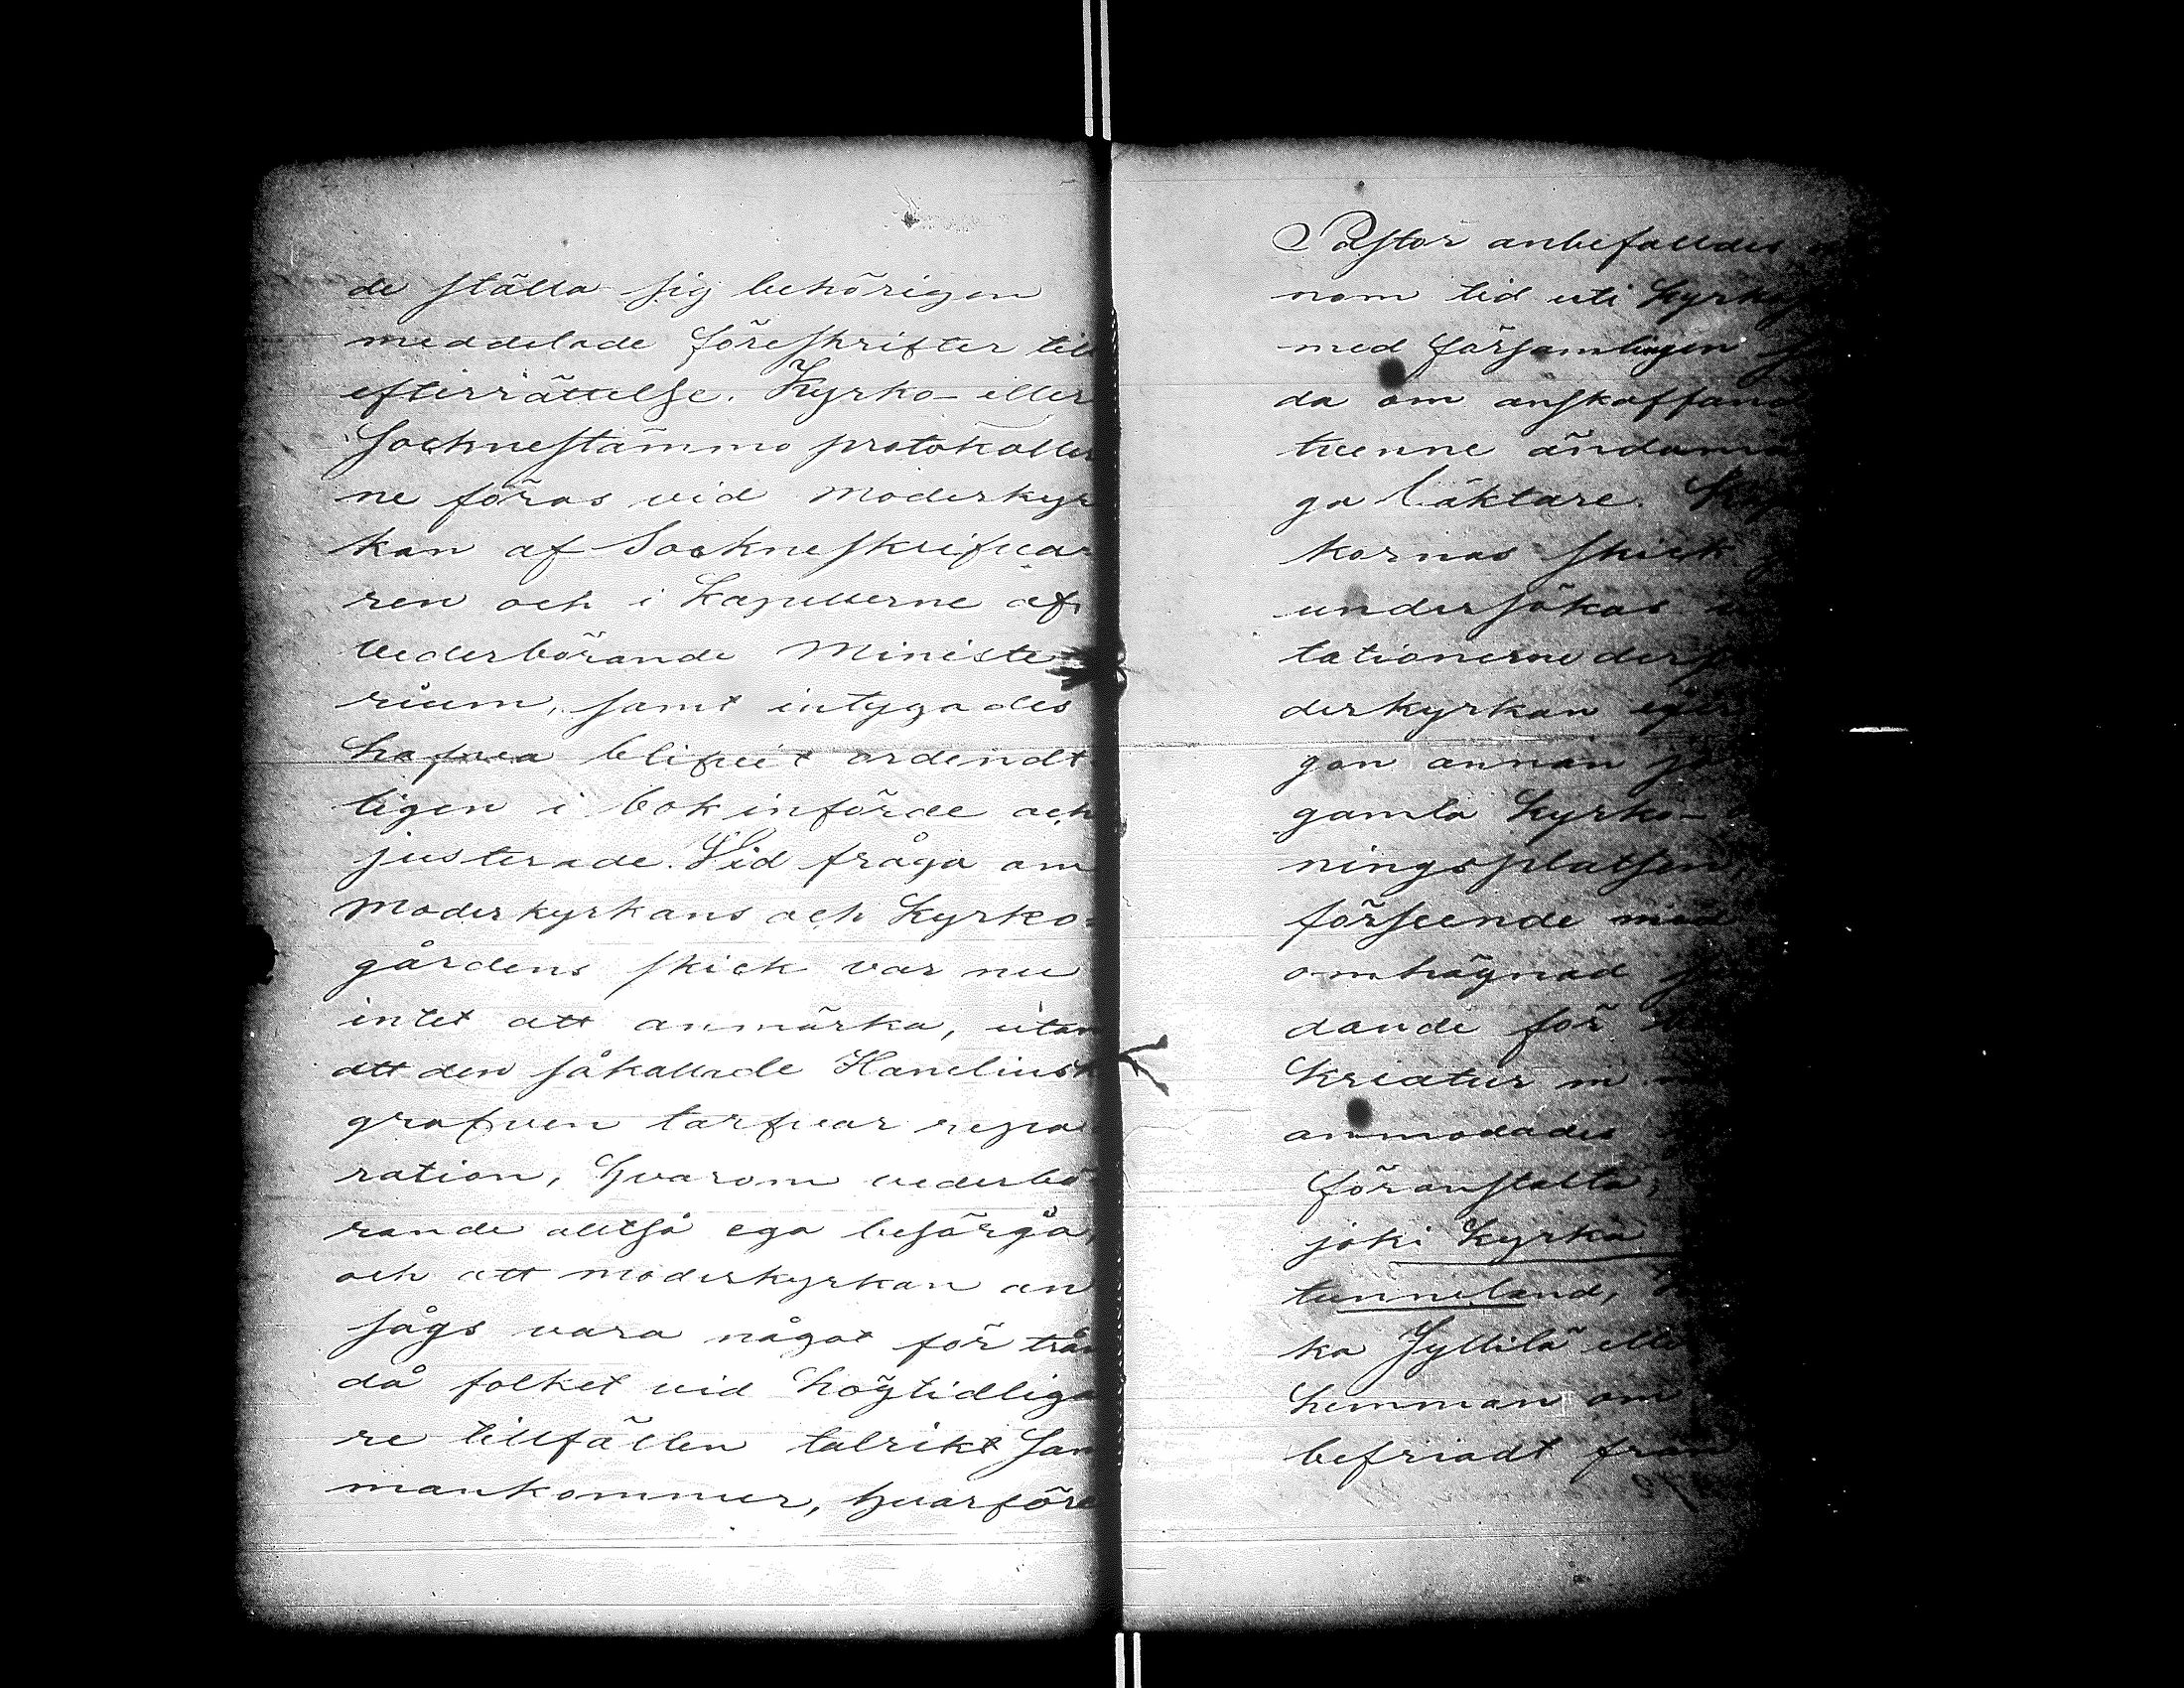 de ställa sig behörigen
meddelade föreskrifter till
efterrättelse. Kyrko- eller
Sockneståmmo protokoller
ne föras vid moderkyr
kan af Sockneskrifvar
ren och i Kapellerne af
vederbörande Ministe
rium, samt intygades
hafva blifvit ordendt
ligen i bok införde och
justerade. Vid fråga om
Moderkyrkans och Kyrko-
gårdens skick var nu
intet att anmärka, utan
att den såkallade Haneliusk
grafven tarfvar repa
ration, hvarom vederbö
rande alltså ega besörja,
och att moderkyrkan an
sågs vara något för trån
då folket vid högtidliga
re tillfällen talrikt sam
mankommer, hvarföre
Pastor anbefalldes
nom tid uti Kyrko
med församlingen
da om anskaffand
tvenne ändama
ga läktare.
kornas skick
undersökas
tationerne der
derkyrkan eger
gon annan
gamla Kyrko-
ningsplatsen,
förseende med
omhägnad
dande för
Kreatur m
anmodades
föranstalta,
joki Kyrka
tunneland,
ka Jyllilä elle
hemman om
befriadt från